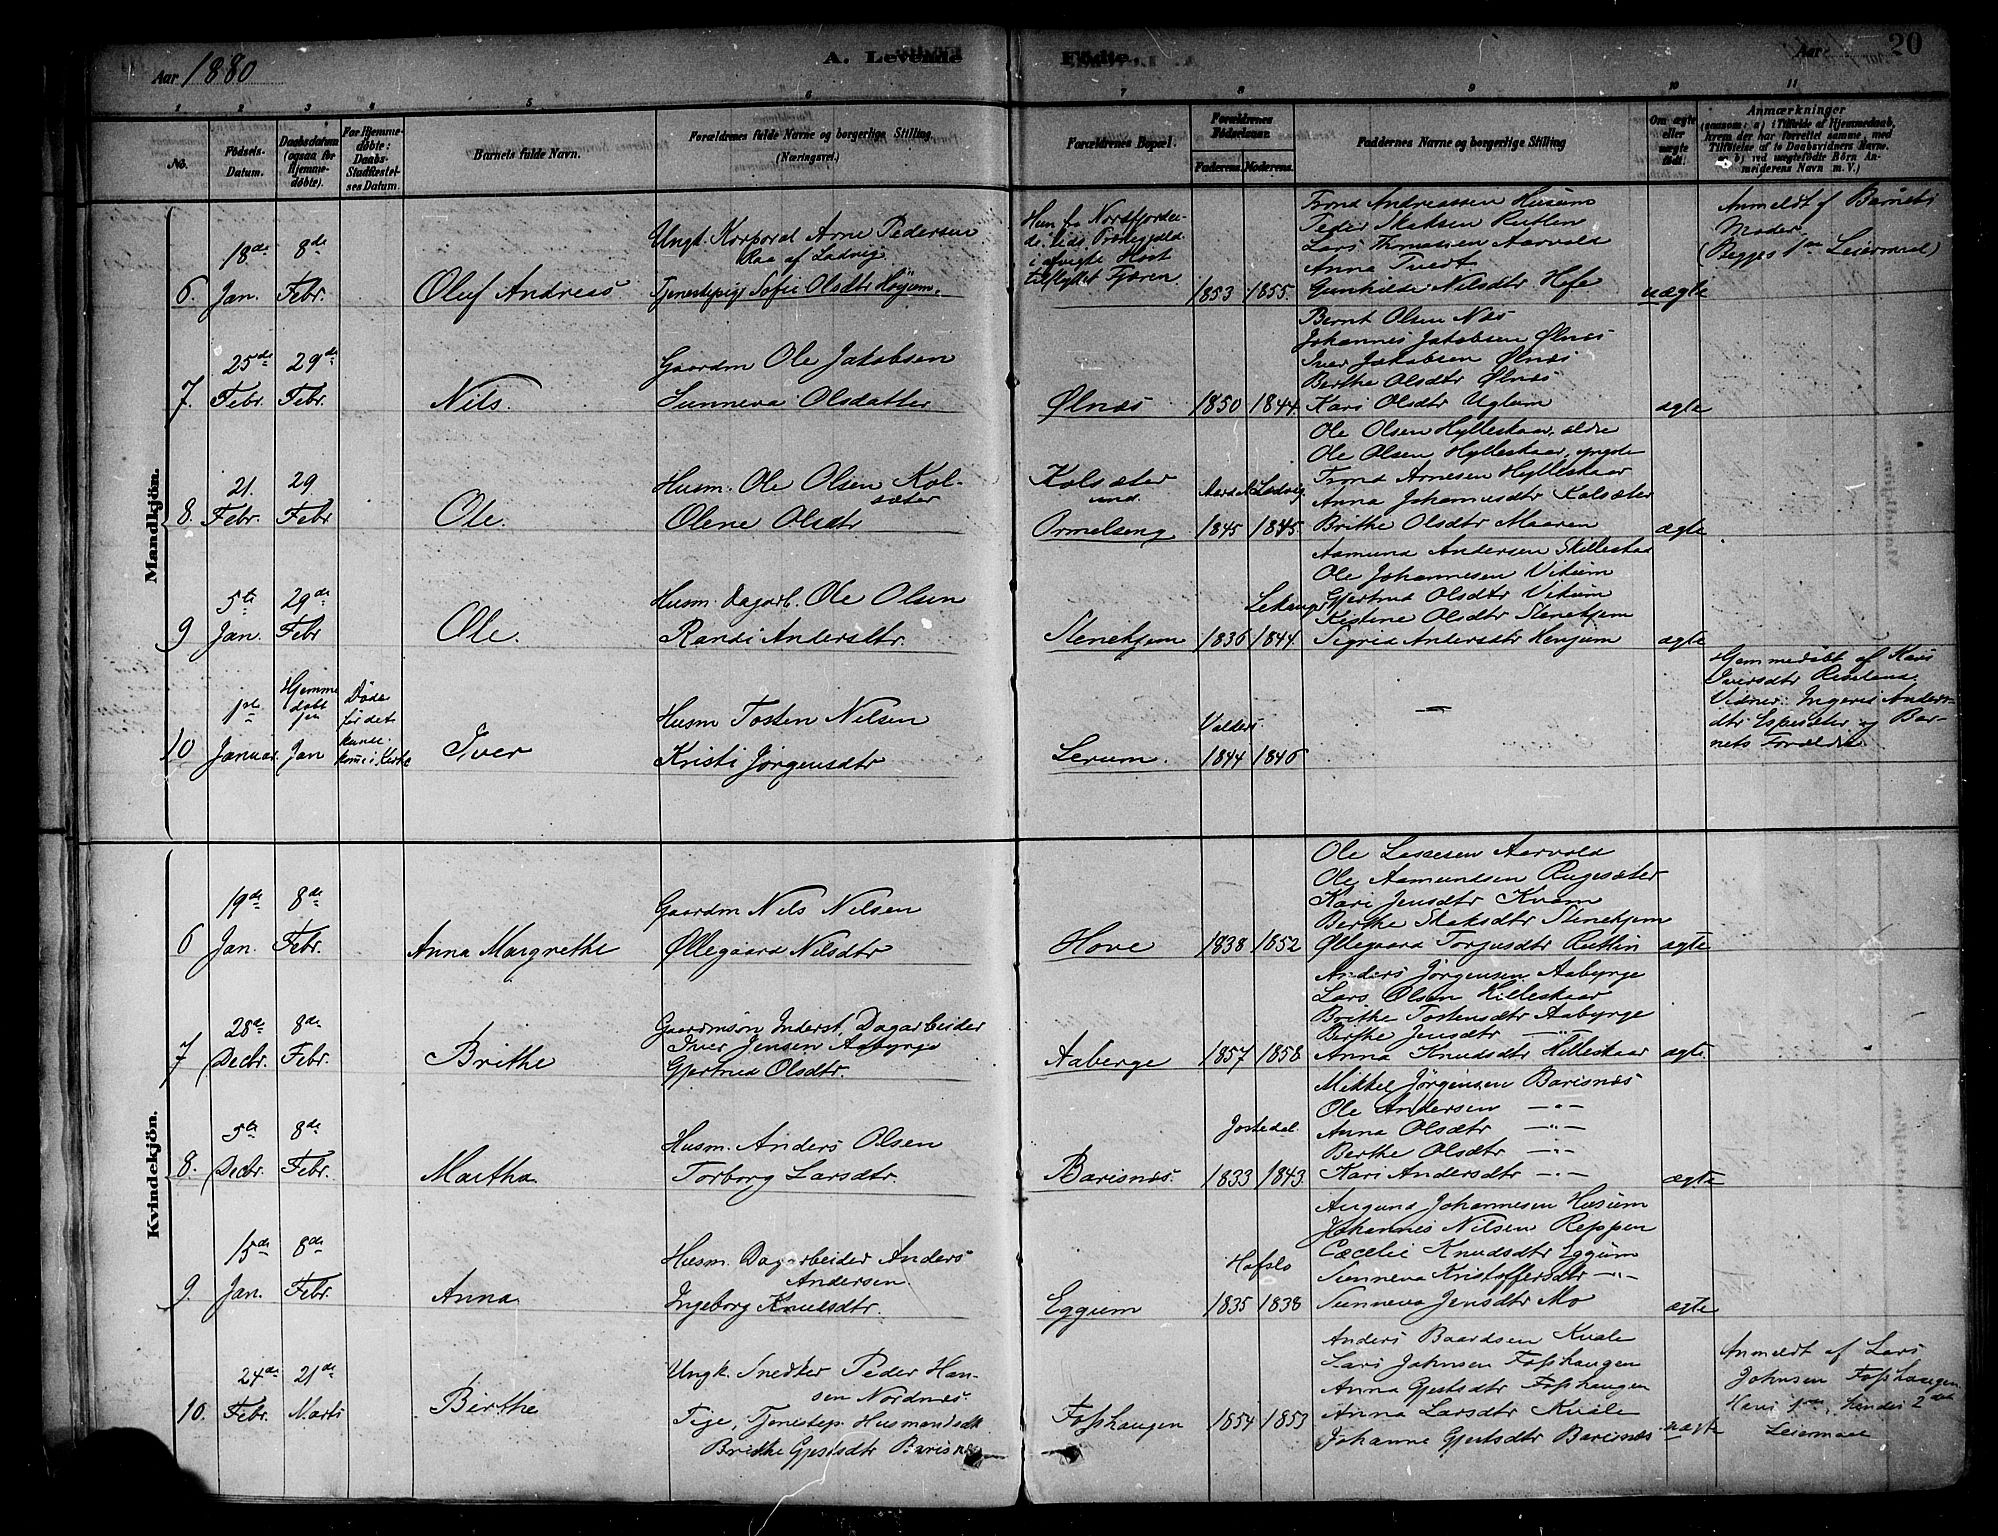 Aar 1880
A. Levende
Födte.
Aar
20
1 2 3 4 5 6 7 8 9 10 11
No.
Födsels-
Datum.
Daabsdatum
(ogsaa for
Hjemme-
döbte).
For Hjemme-
döbte:
Daabs-
Stadfæstel-
ses Datum.
Barnets fulde Navn.
Forældrenes fulde Navne og borgerlige Stilling
(Næringsvei.)
Forældrenes Bopæl.
Forældrenes
Födselsaar.
Faderens. Moderens.
Faddernes Navne og borgerlige Stilling
Om ægte
eller
uægte
födt.
Anmærkninger
(saasom: a) i Tilfælde af Hjemmedaab,
hvem der har forrettet samme, med
Tilföielse af to Daabsvidners Navne,
b) ved uægtefödte Börn An-
melderens Navn m. V.)
Mandkjön.
6.
18de
Jan.
8de
Febr.
Oluf Andreas
Ungk. Korporal Arne Pedersen
Raa af Ladvig
Tjenestepige Sofie Olsdtr Høyum.
Hun fra Nordfjorde-
Præstegjeld
i afvigte Høst
tilflyttet Fjæren.
1853 1855.
Trond Andreassen Husum
Peder Skaksen Rutlen
Lars Thomassen Aarvold
Anna Tvedt
Gunhilde Nilsdtr Hefe
uægte
Anmeldt af Barnets
Moder.
(Begges 1ste Leiermaal)
7.
25de
Febr.
29de
Febr.
Nils.
Gaardm Ole Jakobsen
Sunneva Olsdatter
Ølnæs
1850 1844.
Bernt Olsen Næs
Johannes Jakobsen Ølnæs
Iver Jakobsen Ølnæs
Berthe Olsdtr Ølnæs
Kari Olsdtr Uglum
ægte
8.
21.
Febr.
29
Febr
Ole.
Husm. Ole Olsen Kol-
sæter
Olene Olsdtr
Kolsæter
und.
Ormelseng
Ladvig
1845 1845
Ole Olsen Hylleskaar, ældre
Ole Olsen Hylleskaar, yngste
Trond Arnesen Hylleskaar
Anna Johannesdtr Kolsæter
Brithe Olsdtr Maaren
ægte
9
5te
Jan.
29de
Febr
Ole.
Husm. Dagarb. Ole Olsen
Randi Andersdtr.
Stenehjem
Lekanger
1836 1844
Aamund Andersen Skilleskaar
Ole Johannesen Vikum
Gjertrud Olsdtr Vikum
Kistine Olsdtr Stenehjem
Sigrid Andersdtr Henjum
ægte
10
1ste
Januar
Hjemme
døbt
Jan
Døde
før det
kunde
komme i Kirke
Iver
Husm Tosten Nilsen
Kristi Jørgensdtr
Lerum.
Valders
1844 1846
—
Hjemmedøbt af Kari
Iversdtr
Vidner: Ingerid Anders-
dtr Espesæter og Bar-
nets Forældre
Kvindekjön.
6
19de
Jan.
8de
Febr.
Anna Margrethe
Gaardm Nils Nilsen
Øllegaard Nilsdtr
Hove
1838 1852
Ole Lassesen Aarvold
Ole Aamundsen Rugesæter
Kari Jensdtr Kvam
Berthe Skaksdtr Stenehjem
Øllegaard Torjusdtr Rutlin
ægte
7
28de
Decbr.
8de
Febr.
Brithe
Gaardmsøn Inderst, Dagarbeider
Iver Jensen Aabyrge
Gjertrud Olsdtr.
Aaberge
1857 1858.
Anders Jørgensen Aabyrge
Lars Olsen Hilleskaar
Brithe Tostensdtr Aabyrge
Birthe Jensdtr —"—
Anna Knudsdtr Hilleskaar
ægte.
8.
5te
Decbr.
8de
Febr.
Martha
Husm. Anders Olsen
Torborg Larsdtr.
Barisnæs.
Jostedal.
1833 1843.
Mikkel Jørgensen Barisnæs
Ole Andersen —"—
Anna Olsdtr —"—
Berthe Olsdtr —"—
Kari Andersdtr —"—
ægte
9.
15de
Jan.
8de
Febr.
Anna
Husm. Dagarbeider Anders
Andersen
Ingeborg Knudsdtr.
Eggum
Hafslo
1835 1838
Augund Johannesen Husum
Johannes Nilsen Reppen
Cæcelie Knudsdtr Eggum
Sunneva Kristoffersdtr —"—
Sunneva Jensdtr Mo
ægte
10.
24de
Febr.
21de
Marts
Birthe
Ungk. Snedker Peder Han-
sen Nordnæs
Pige, Tjenestep. Husmandsdtr
Brithe Gjertsdtr Barisnæs
Fosshaugen
1854 1853
Anders Baardsen Kvale
Lars Johnsen Fosshaugen
Anna Gjertsdtr Fosshaugen
Anna Larsdtr Kvale
Johanne Gjertsdtr Barisnæs
uægte
Anmeldt af Lars
Johnsen Fosshaugen
Hans 1ste hendes 2det
Leiermaal